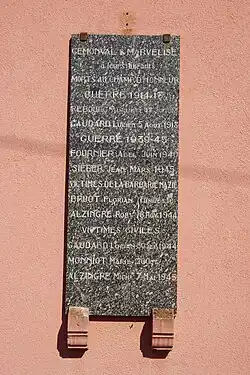 GEMONVAL & MARVELISE
à leurs Enfants
MORTS AU CHAMP D'HONNEUR
GUERRE 1914-17
GAUDARD Lucien 5 Août 1915
GUERRE 1939-45
FOURNIER Abel Juin 1940
SIEBER Jean Mars 1945
VICTIMES DE LA BARBARIE NAZIE
BRUOT Florian
ALZINGRE Robt 16 Nov 1944
VICTIMES CIVILES
GAUDARD Lucien 1944
MONNIOT Marie
ALZINGRE Mich 7 Mai 1945